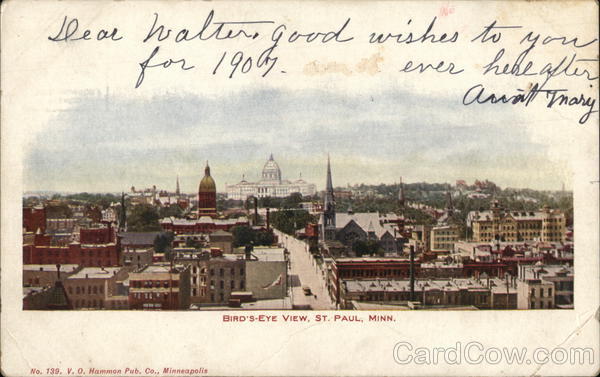 Dear Walter, Good wishes to you
for 1907. ever hereafter
Aunt Mary
BIRD'S-EYE VIEW, ST. PAUL, MINN.
No. 139. V. O. Hammon Pub. Co., Minneapolis
CardCow.com